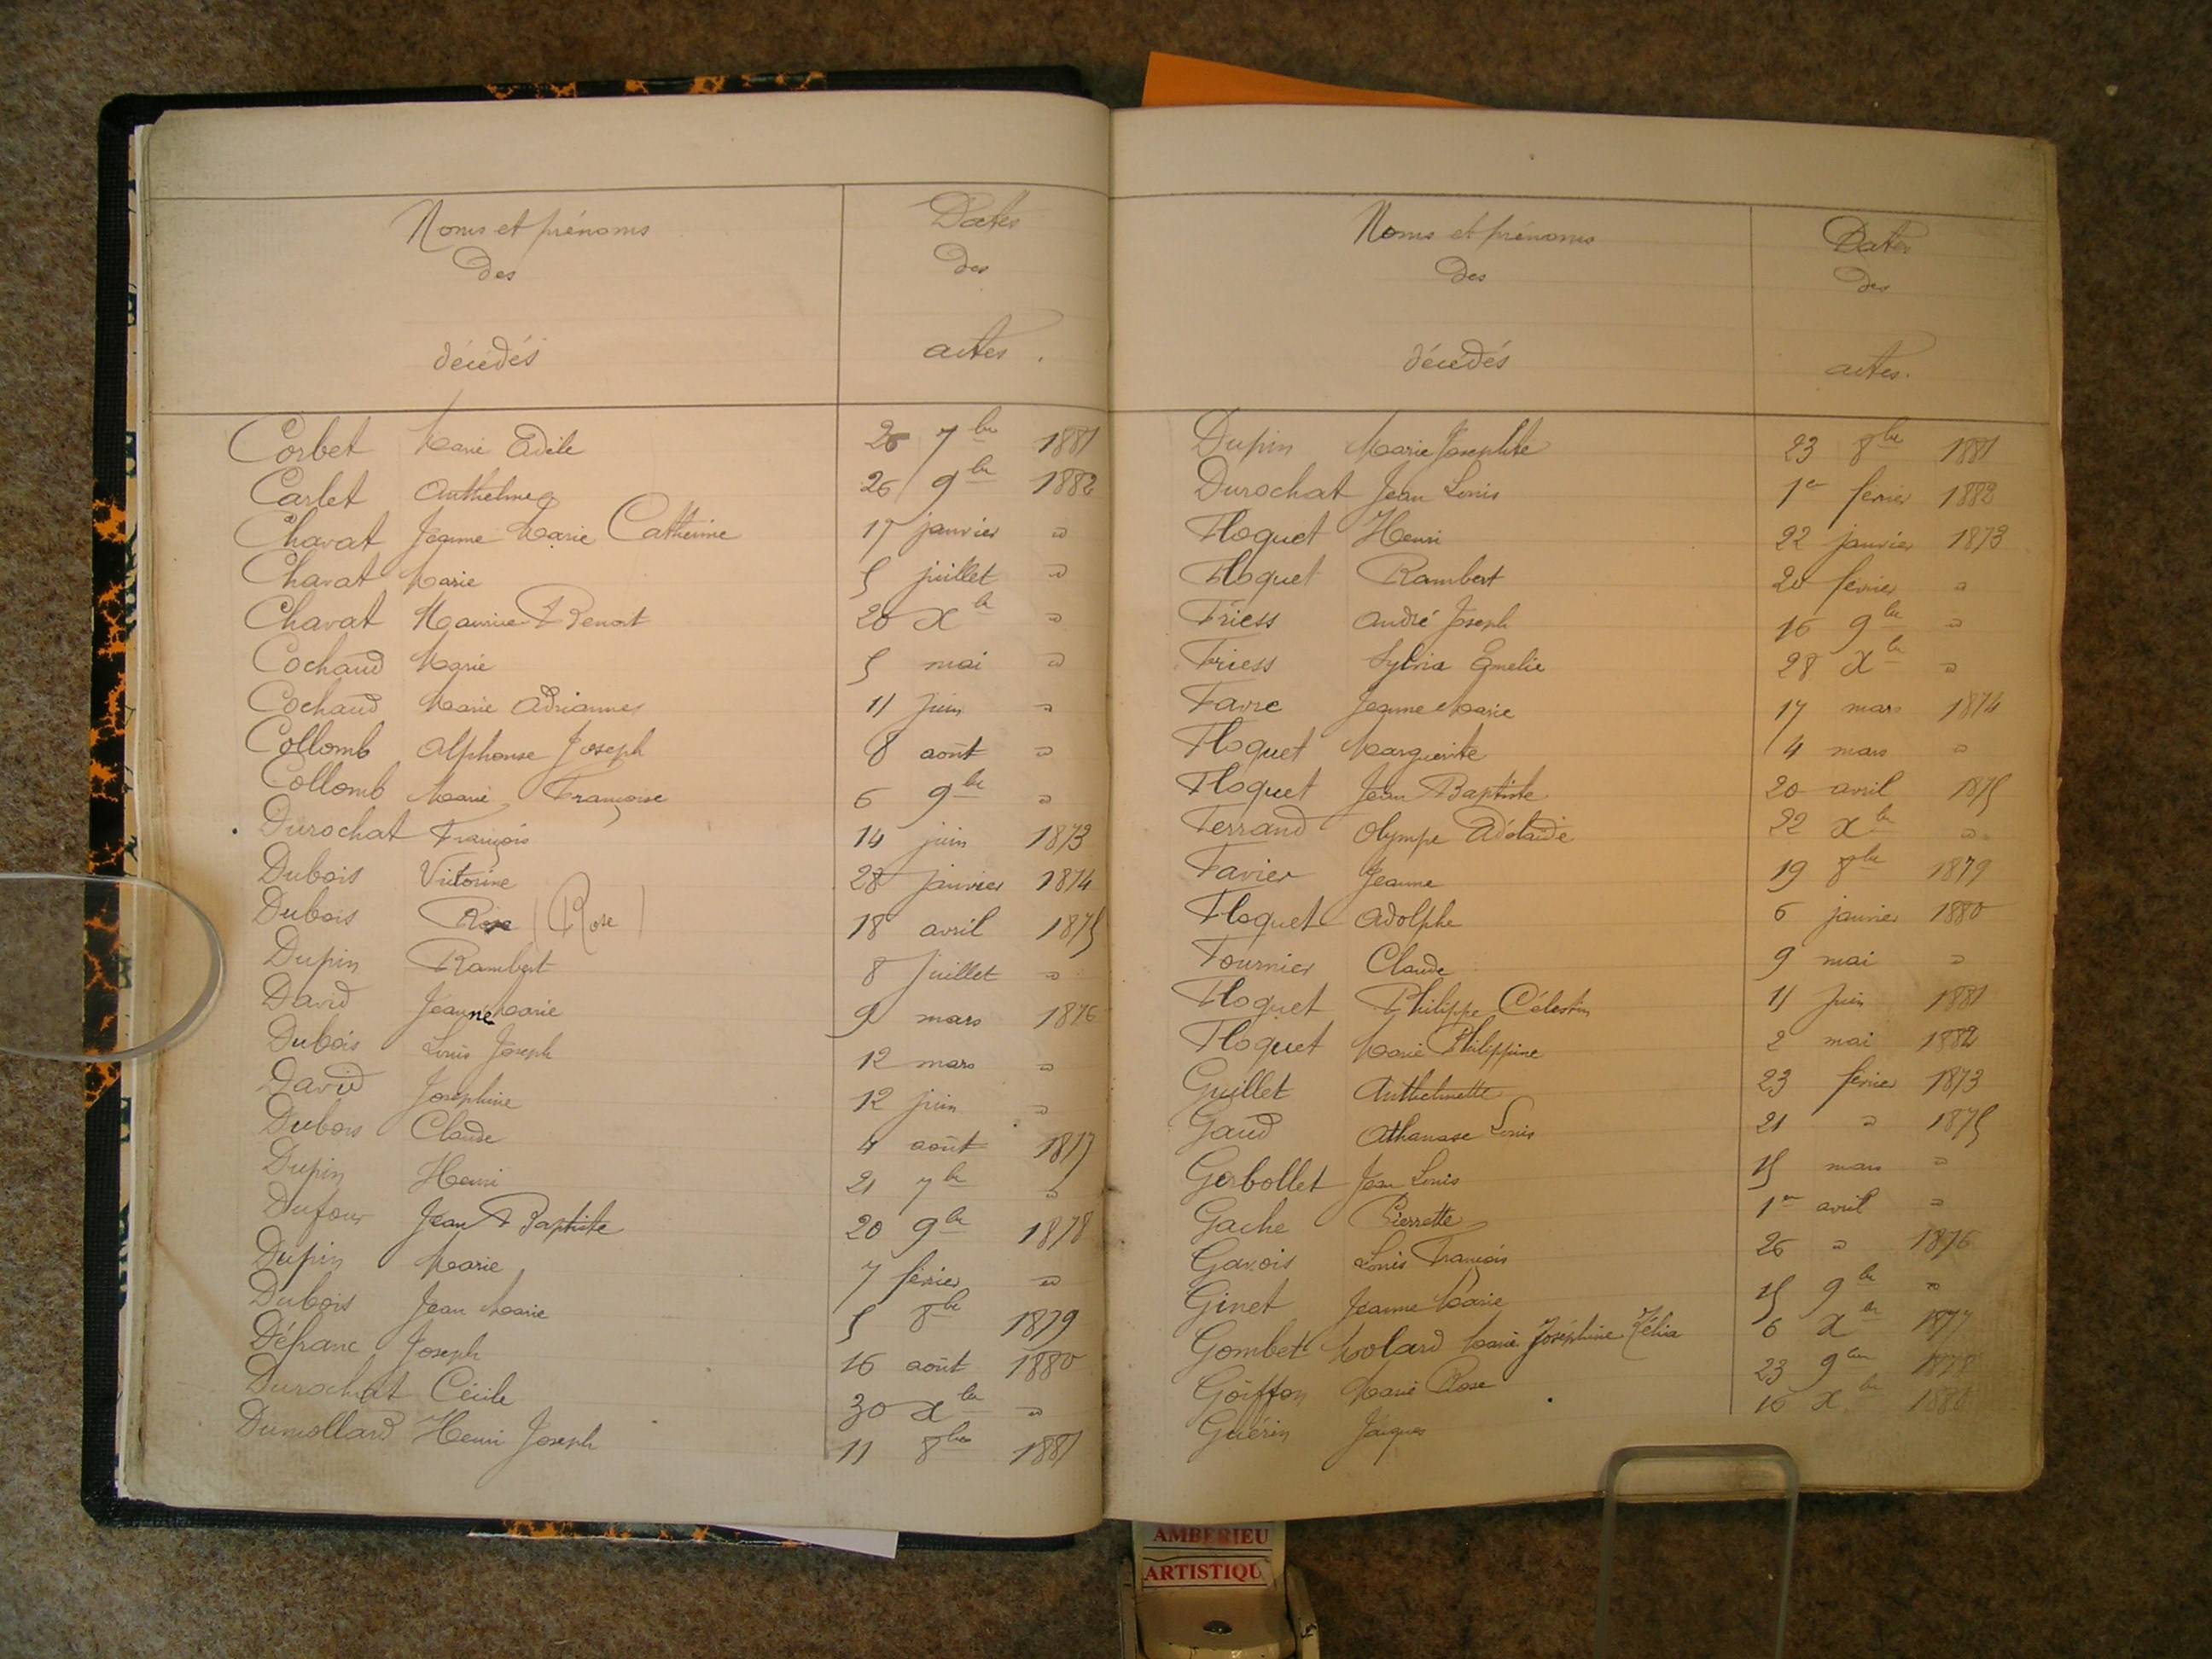 Noms et prénoms
des
décédés
Dates
des
actes.
Corbet Marie Adèle 26 7bre 1881
Carlet Anthelme 26 9bre 1882
Chavat Jeanne Marie Catherine 17 janvier "
Chavat Marie 5 juillet "
Chavat Maurice Benoit 20 Xbre "
Cochaud Marie 5 mai "
Cochaud Marie Adrianne 11 juin "
Collomb Alphonse Joseph 8 août "
Collomb Marie Françoise 6 9bre "
Durochat François 14 juin 1873
Dubois Victorine 28 janvier 1874
Dubois Rose (Rose) 18 avril 1875
Dupin Rambert 8 juillet "
David Jeanne Marie 9 mars 1876
Dubois Louis Joseph 12 mars "
David Joséphine 12 juin "
Dubois Claude 4 août 1877
Dupin Henri 21 7bre "
Dufour Jean Baptiste 20 9bre 1878
Dupin Marie 7 février "
Dubois Jean Marie 5 8bre 1879
Défranc Joseph 16 août 1880
Durochat Cécile 30 Xbre "
Dumollard Henri Joseph 11 8bre 1881
Noms et prénoms
des
décédés
Dates
des
actes.
Dupin Marie Josephte 23 8bre 1881
Durochat Jean Louis 1er février 1882
Floquet Henri 22 janvier 1873
Floquet Rambert 20 février "
Friess André Joseph 16 9bre "
Friess Sylvia Emelie 28 Xbre "
Favre Jeanne Marie 17 mars 1874
Floquet Marguerite 4 mars "
Floquet Jean Baptiste 20 avril 1875
Ferrand Olympe Adélaïde 22 Xbre "
Favier Jeanne 19 8bre 1879
Floquet Adolphe 6 janvier 1880
Fournier Claude 9 mai "
Floquet Philippe Célestin 11 juin 1881
Floquet Marie Philippine 2 mai 1882
Guillet Anthelmette 23 février 1873
Gaud Athanase Louis 21 " 1875
Gerbollet Jean Louis 15 mars "
Gache Pierrette 1er avril "
Gavois Louis François 26 " 1876
Ginet Jeanne Marie 15 9bre "
Gombet Molard Marie Joséphine Zélia 6 Xbre 1877
Goiffon Marie Rose 23 9bre 1878
Guérin Jacques 16 Xbre 1880
AMBERIEU
ARTISTIQU